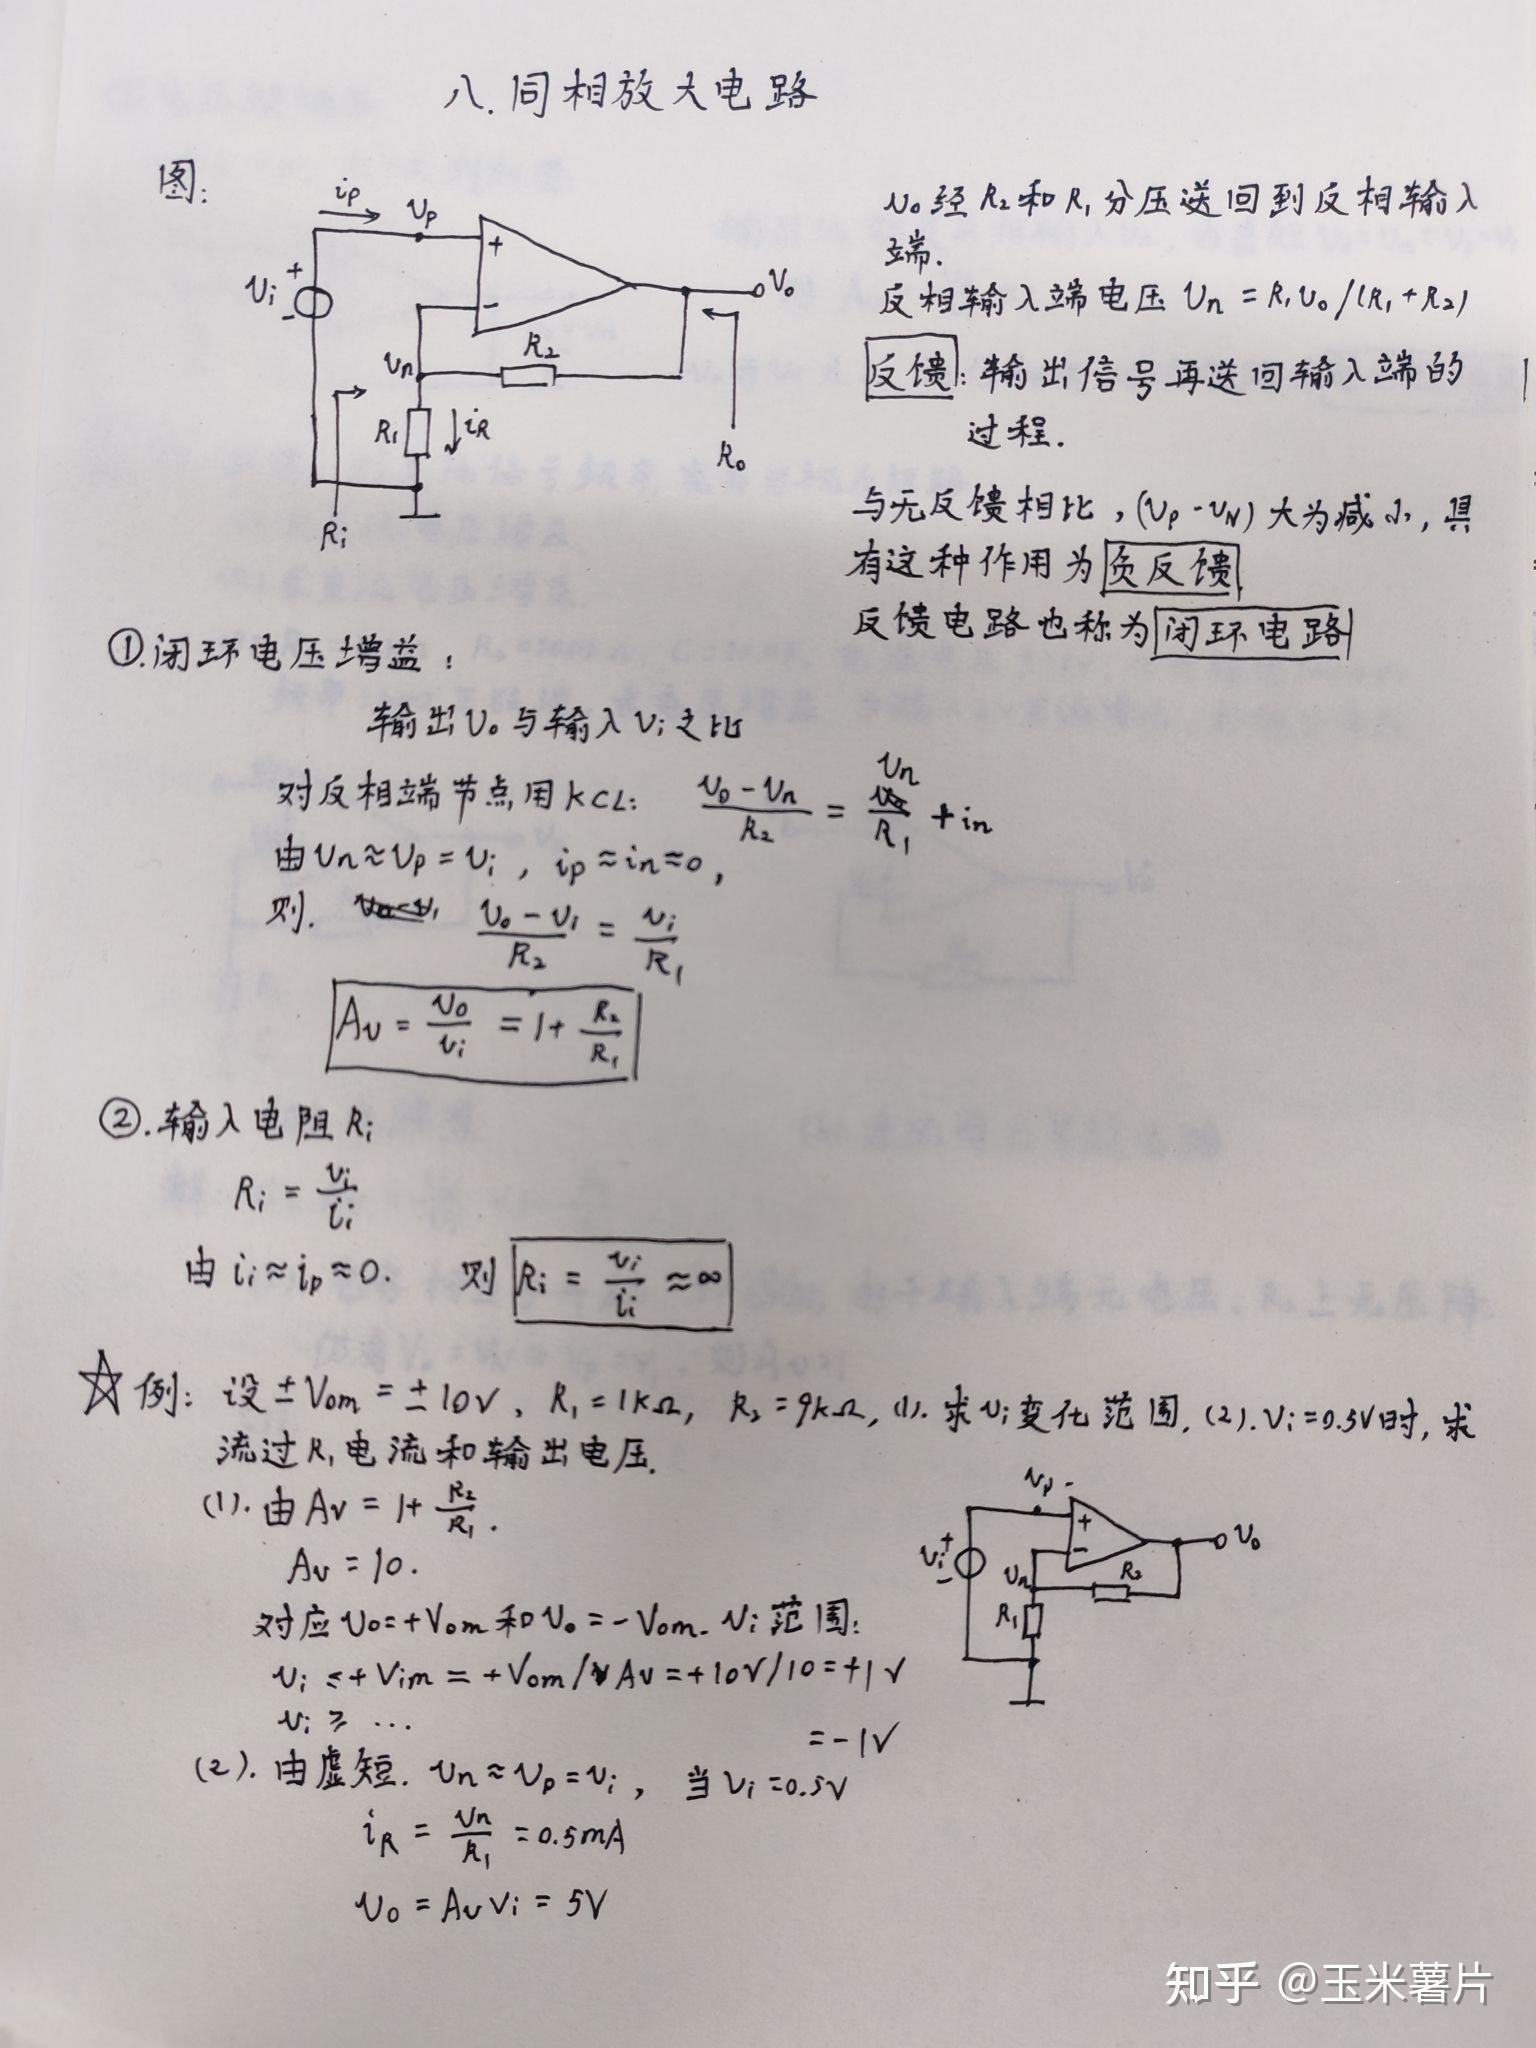 八.同相放大电路
图:
ip
vp
+
-
vi
+
-
vo
vn
R2
R1
iR
Ro
Ri
vo 经 R2 和 R1 分压送回到反相输入
端.
反相输入端电压 vn = R1vo/(R1+R2)
反馈:输出信号再送回输入端的
过程.
与无反馈相比,(vp-vN)大为减小,具
有这种作用为负反馈
反馈电路也称为闭环电路
①.闭环电压增益:
输出vo与输入vi之比
对反相端节点用KCL: (vo-vn)/R2 = vn/R1 + in
由 vn≈vp=vi, ip≈in≈0,
则. (vo-vi)/R2 = vi/R1
Av = vo/vi = 1+ R2/R1
②.输入电阻Ri
Ri = vi/ii
由 ii≈ip≈0. 则 Ri = vi/ii ≈∞
☆例:设±Vom=±10V、R1=1kΩ, R2=9kΩ,(1).求vi变化范围.(2).Vi=0.5V时,求
流过R1电流和输出电压.
(1).由Av = 1+ R2/R1.
Av = 10.
对应vo=+Vom和vo=-Vom. vi范围:
vi ≤+Vim = +Vom/Av=+10V/10=+1V
vi ≥ ...
=-1V
(2).由虚短. vn≈vp=vi, 当vi=0.5V
iR = vn/R1 =0.5mA
vo = AvVi = 5V
vp
+
-
vi
+
-
vo
vn
R2
R1
知乎 @玉米薯片